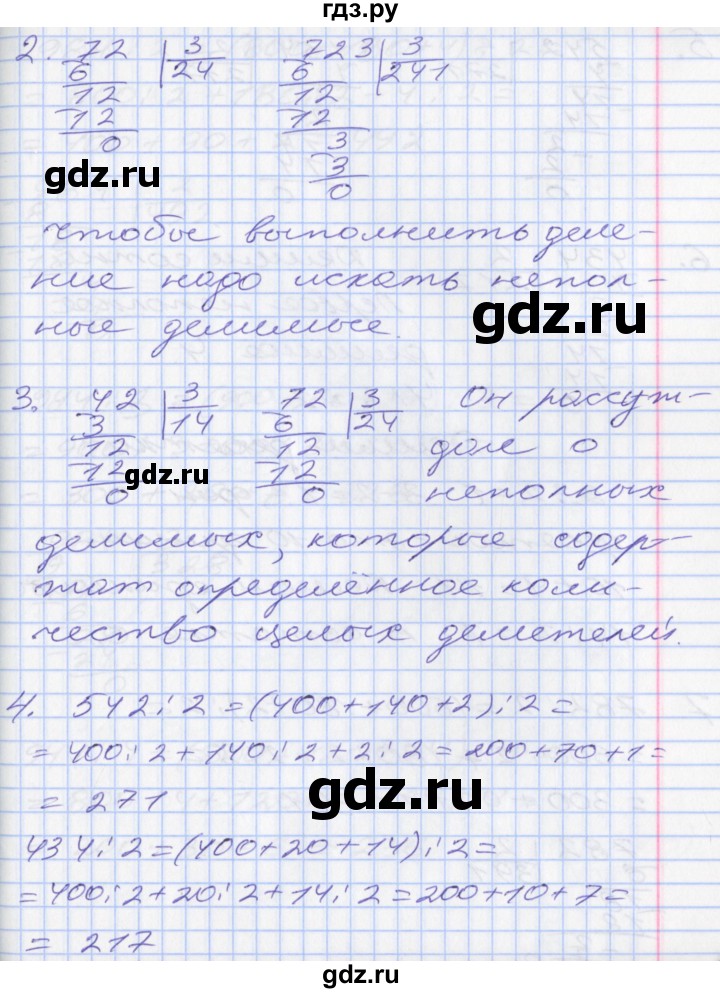 гдз.ру
2. 72 |3 723 |3
6 24 6 241
12 12
12 12
0 3
3
0
gdz.ru
чтобы выполнить деле-
ние надо искать непол-
ные делимые.
gdz.ru
3. 42 |3 72 |3 Он рассуж-
3 14 6 24
12 12 дал о
12 12
0 0 неполных
gdz.ru
делимых, которые содер-
жат определённое коли-
чество целых делителей.
4. 542:2=(400+140+2):2=
=400:2+140:2+2:2=200+70+1=
= 271
gdz.ru
434:2=(400+20+14):2=
=400:2+20:2+14:2=200+10+7=
= 217
gdz.ru